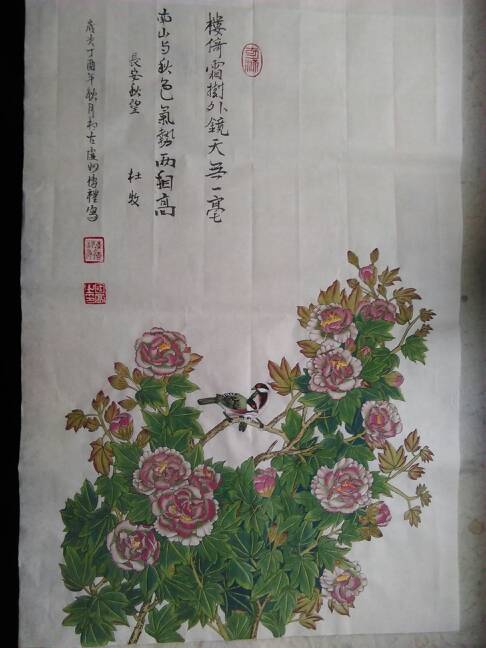 樓倚霜樹外鏡天無一毫
南山与秋色氣勢两相高
長安秋望 杜牧
歲次丁酉年秋月於古廬州博禮寫